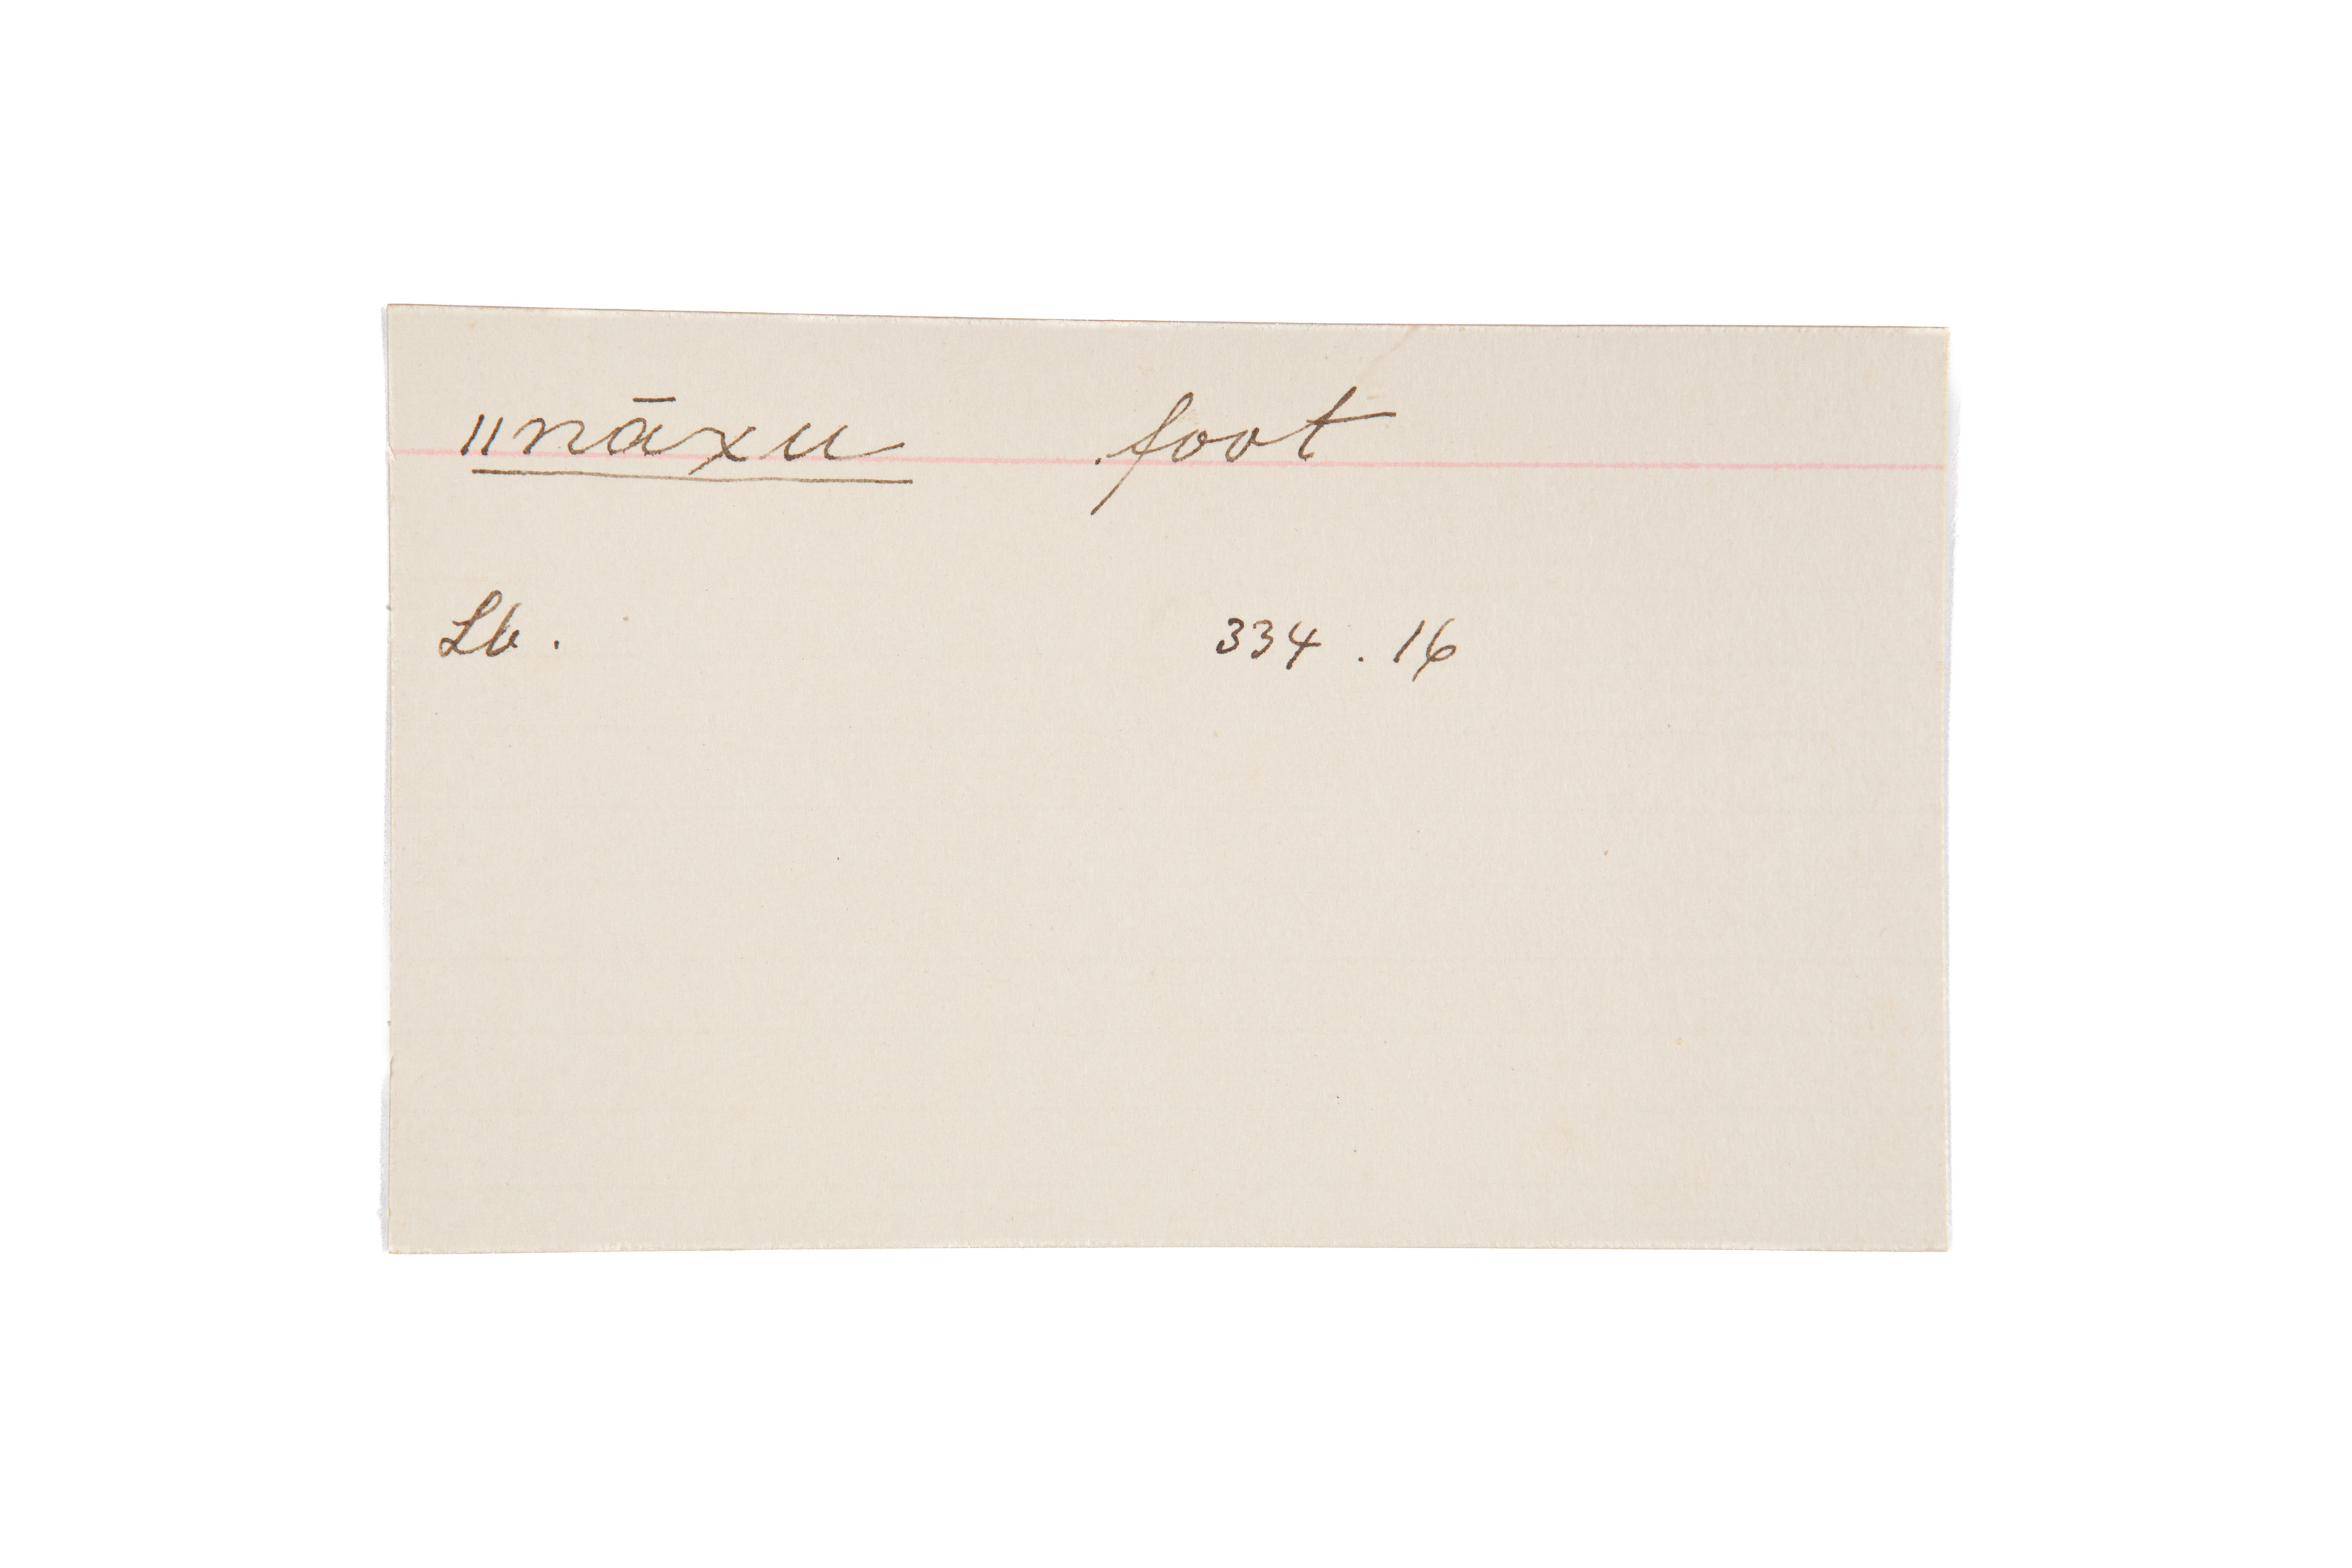 ǁnāxu foot
Lb. 334.16